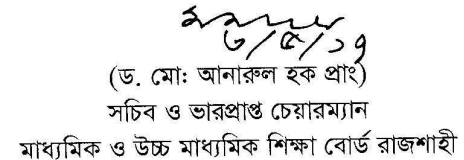 ৩/৫/১৭
(ড. মো: আনারুল হক প্রাং)
সচিব ও ভারপ্রাপ্ত চেয়ারম্যান
মাধ্যমিক ও উচ্চ মাধ্যমিক শিক্ষা বোর্ড রাজশাহী